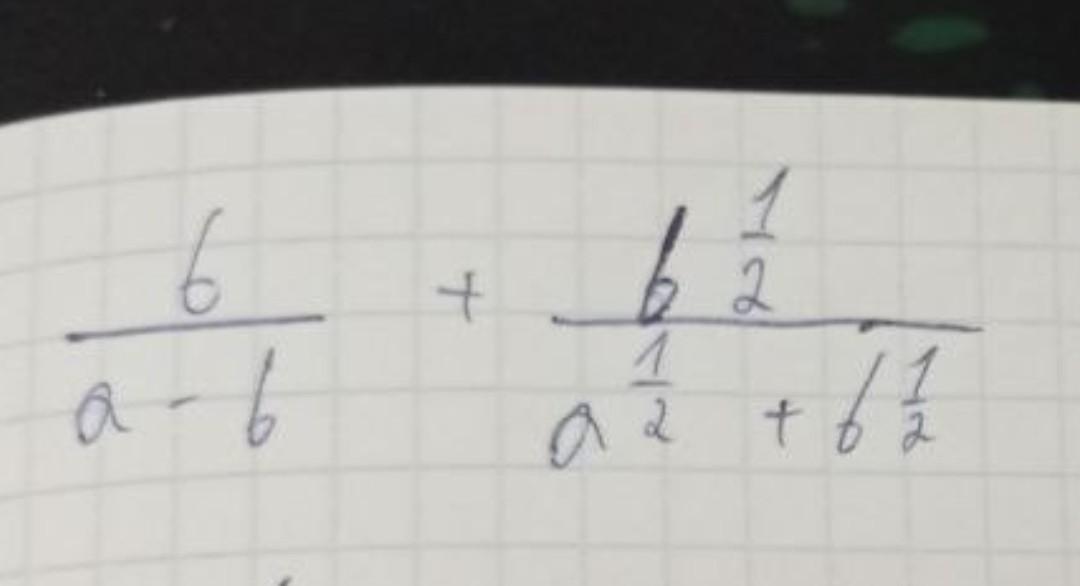 b/(a - b) + b^(1/2)/(a^(1/2) + b^(1/2))